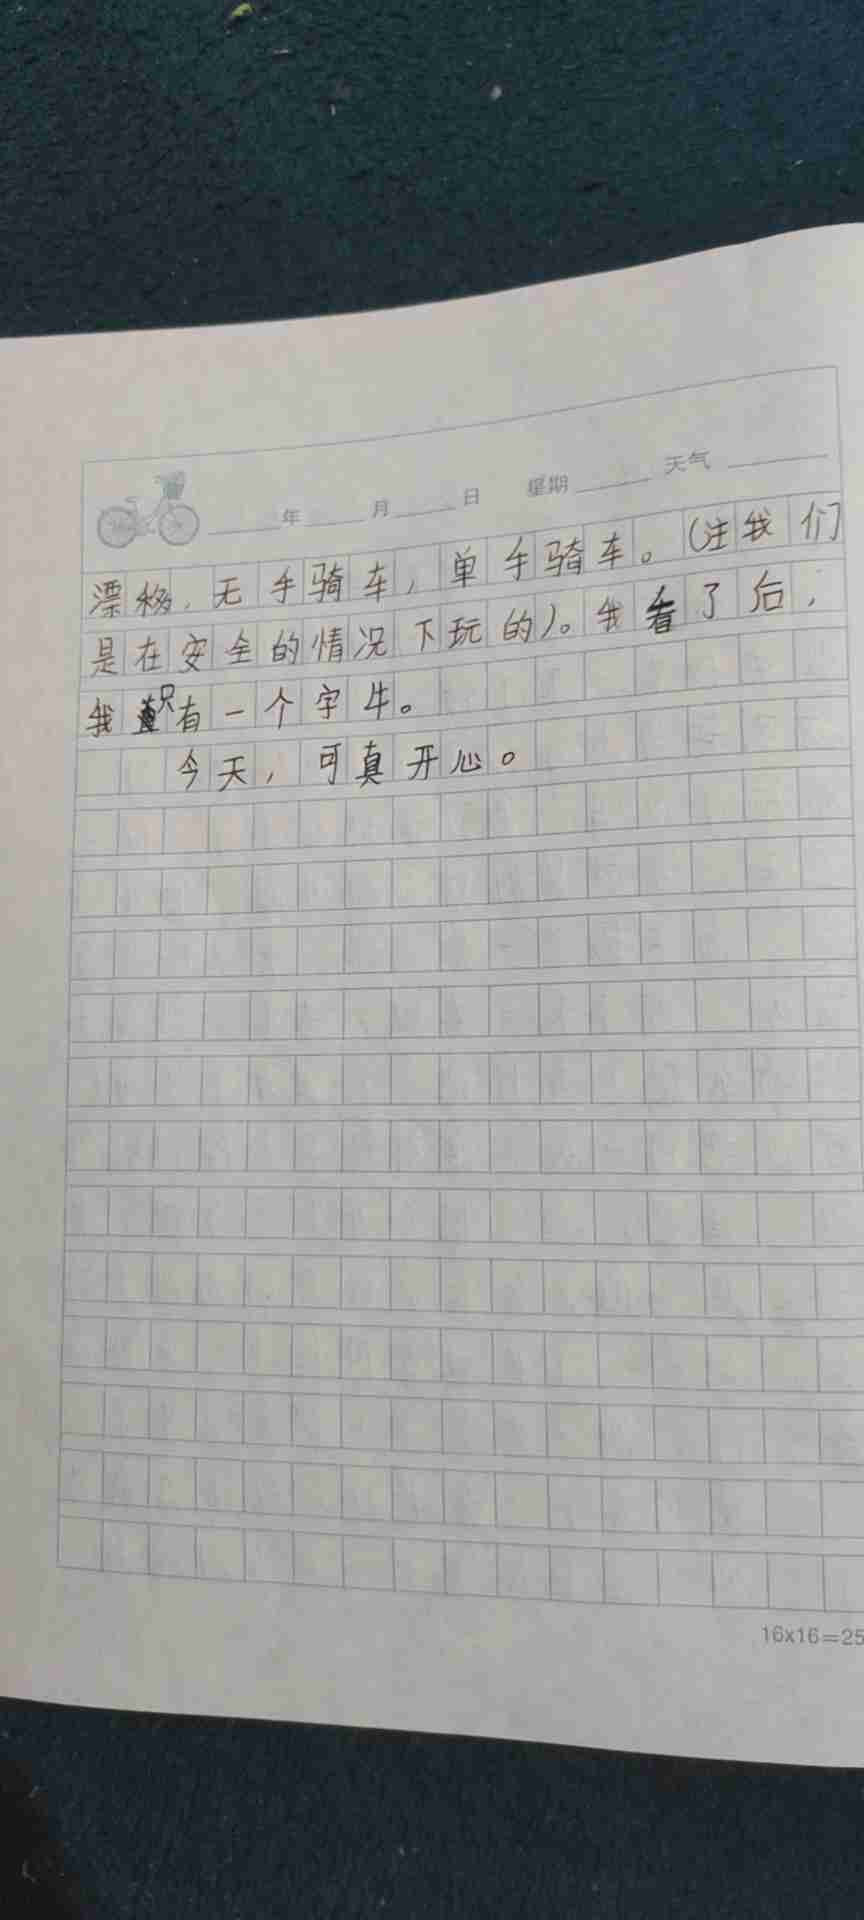 年 月 日 星期 天气
漂移,无手骑车,单手骑车。(注我们
是在安全的情况下玩的)。我看了后,
我只有一个字牛。
今天,可真开心。
16x16=25